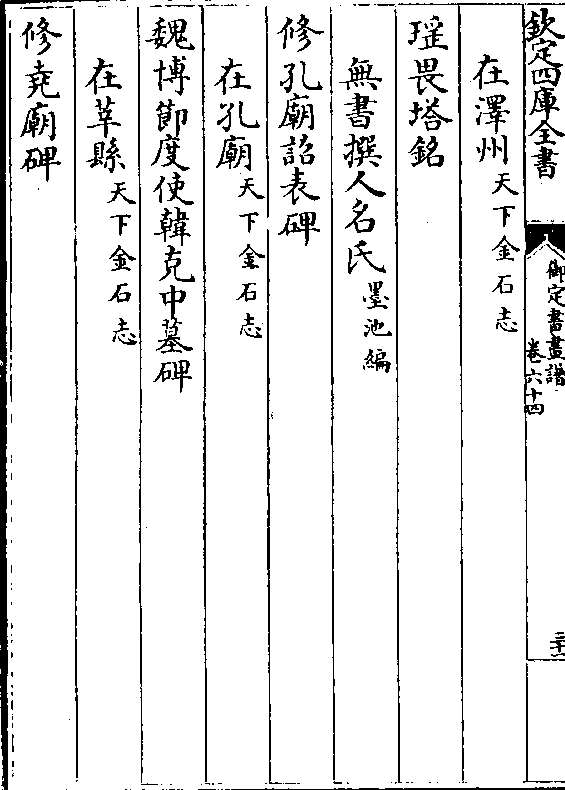 欽定四庫全書
御定書畫譜
卷六十四
三十一
在澤州天下金石志
瑶畏塔銘
無書撰人名氏墨池編
修孔廟詔表碑
在孔廟天下金石志
魏博節度使韓克中墓碑
在莘縣天下金石志
修堯廟碑